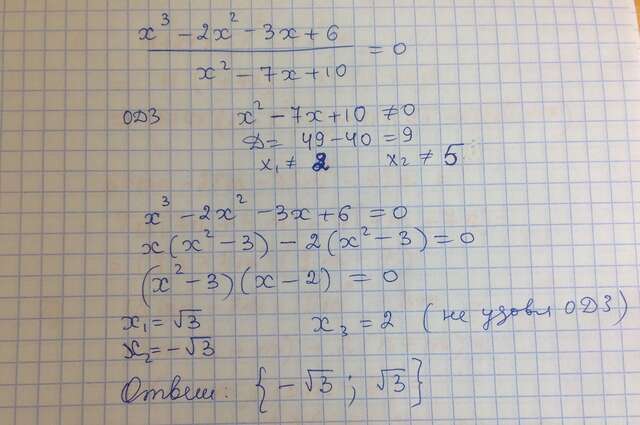 x³ - 2x² - 3x + 6
x² - 7x + 10
= 0
ОДЗ x² - 7x + 10 ≠ 0
Д = 49 - 40 = 9
x₁ ≠ 2 x₂ ≠ 5
x³ - 2x² - 3x + 6 = 0
x(x² - 3) - 2(x² - 3) = 0
(x² - 3)(x - 2) = 0
x₁ = √3 x₃ = 2 (не удовл ОДЗ)
x₂ = -√3
Ответ: {-√3; √3}